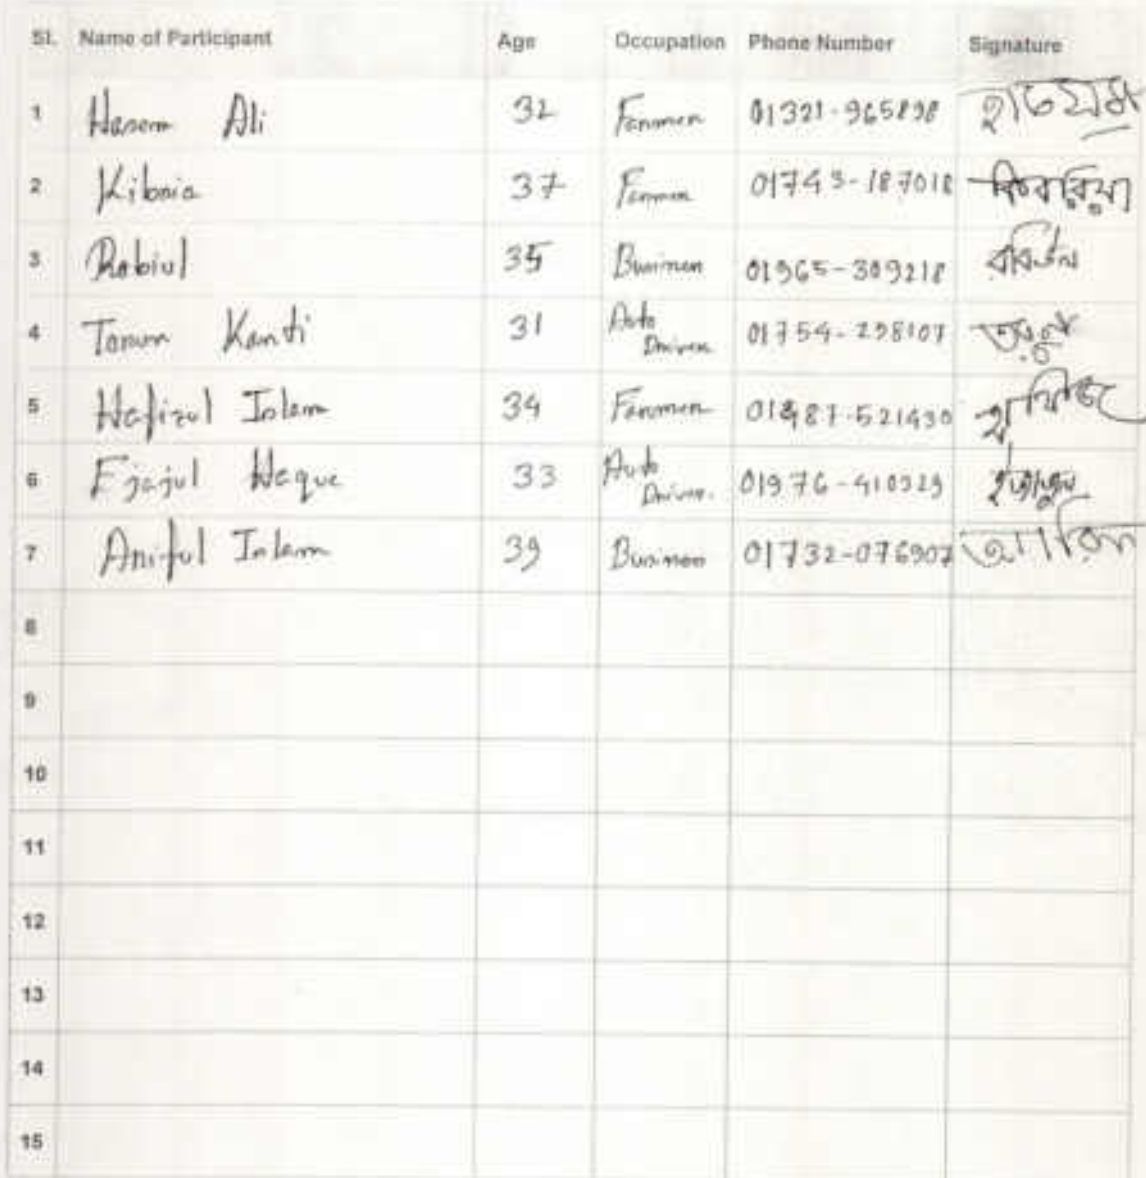 SL Name of Participant Age Occupation Phone Number Signature
1 Hasem Ali 32 Farmer 01321-965898 হাতেম
2 Kibria 37 Farmer 01743-187018 কিবরিয়া
3 Rabiul 35 Businen 01965-309218 রবিউল
4 Torun Kanti 31 Auto Driver 01754-298107
5 Hafizul Islam 34 Farmer
6 Ejajul Haque 33 Auto Driver. 01976-410929
7 Ariful Islam 39 Businen 01732-076907 আরিফ
8
9
10
11
12
13
14
15